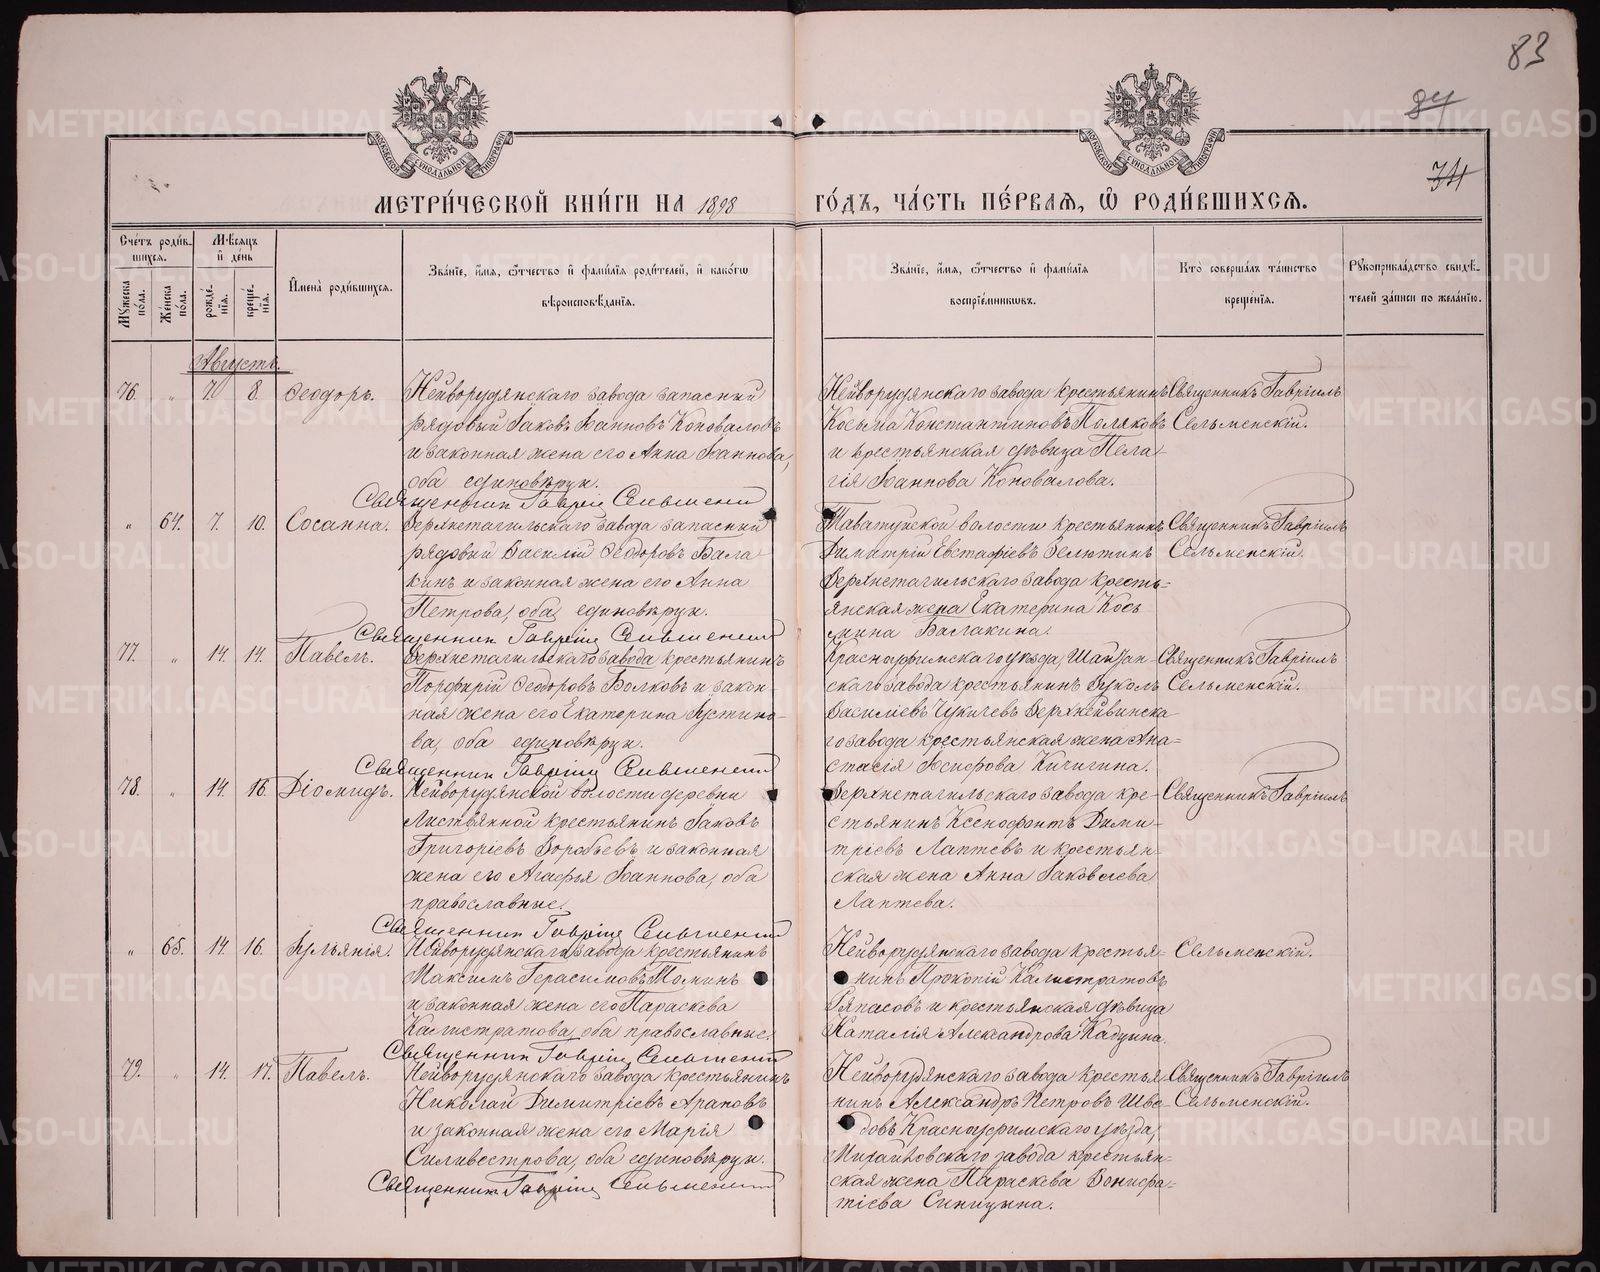 83
84
34
МЕТРИ́ЧЕСКОЙ КНИ́ГИ НА 1898 ГО́ДЪ, ЧА́СТЬ ПЕ́РВАѦ, Ѡ РОДИ́ВШИХСѦ.
Сче́тъ роди́в-
шихся.
Мѣсѧцъ
и де́нь
Мꙋжеска
по́ла.
Же́нска
по́ла.
рожде́-
нїѧ.
креще́-
нїѧ.
Имена̀ роди́вшихсѧ.
Зва́нїе, и́мѧ, ѻ҆́тчество и҆ фами́лїѧ роди́телей, и҆ како́гѡ
вѣроисповѣ́данїѧ.
Зва́нїе, и́мѧ, ѻ҆́тчество и҆ фами́лїѧ
воспрїе́мникѡвъ.
Кто̀ соверша́лъ та́инство
креще́нїѧ.
Рꙋкоприкла́дство свидѣ́-
телей за́писи по жела́нїю.
Августъ.
76. " 7. 8. Ѳеодоръ.
Нейворудянскаго завода запасный
рядовый Іаковъ Іоанновъ Коноваловъ
и законная жена его Анна Іоаннова,
оба единовѣрцы.
Священник Гавріил Сельменский
Нейворудянскаго завода крестьянинъ
Косьма Константиновъ Поляковъ
и крестьянская дѣвица Пела-
гія Іоаннова Коновалова.
Священникъ Гавріилъ
Сельменскій.
" 64. 7. 10. Сосанна.
Верхнетагильскаго завода запасный
рядовый Василій Ѳеодоровъ Бала
кинъ и законная жена его Анна
Петрова, оба единовѣрцы.
Священник Гавріил Сельменский
Таватуйской волости крестьянинъ
Димитрій Евстафіевъ Селютинъ
Верхнетагильскаго завода кресть-
янская жена Екатерина Козь
мина Балакина.
Священникъ Гавріилъ
Сельменскій.
77. " 14. 14. Павелъ.
Верхнетагильскаго завода крестьянинъ
Порфирій Ѳеодоровъ Волковъ и закон
ная жена его Екатерина Іустино-
ва, оба единовѣрцы.
Священник Гавріил Сельменский
Красноуфимскаго уѣзда, Шайтан-
скаго завода крестьянинъ Вуколъ
Василіевъ Чукичевъ Верхнейвинска
го завода крестьянская жена Ана-
стасія Кичигина.
Священникъ Гавріилъ
Сельменскій.
78. " 14. 16. Діомидъ.
Нейворудянской волости деревни
Листвянной крестьянинъ Іаковъ
Григоріевъ Воробьевъ и законная
жена его Агафья Іоаннова, оба
православные.
Священник Гавріил Сельменский
Верхнетагильскаго завода кре-
стьянинъ Ксенофонтъ Дими-
тріевъ Лаптевъ и крестьян-
ская жена Анна Іаковлева
Лаптева.
Священникъ Гавріилъ
" 65. 14. 16. Іульянія.
Нейворудянскаго завода крестьянинъ
Максимъ Герасимовъ Томинъ
и законная жена его Параскева
Калистратова, оба православные.
Священник Гавріил Сельменский
Нейворудянскаго завода крестья-
нинъ Прокопій Калистратовъ
Ряпасовъ и крестьянская дѣвица
Наталія Александрова Кадцина.
Сельменскій.
79. " 14. 17. Павелъ.
Нейворудянскаго завода крестьянинъ
Николай Димитріевъ Араповъ
и законная жена его Марія
Силивестрова, оба единовѣрцы.
Священник Гавріил Сельменский
Нейворудянскаго завода крестья
нинъ Александръ Петровъ Шве-
довъ Красноуфимскаго уѣзда,
Михайловскаго завода крестьян-
ская жена Параскева Вонифа-
тіева Синицына.
Священникъ Гавріилъ
Сельменскій.